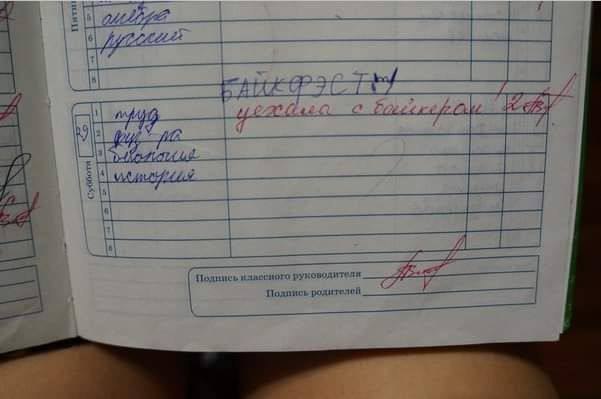 Пятни
5 алгебра
6 русский
7
8
БАЙКФЭСТ!!!
Суббота 29
1 труд уехала с байкером! 2
2 физ-ра
3 биология
4 история
5
6
7
8
Подпись классного руководителя
Подпись родителей